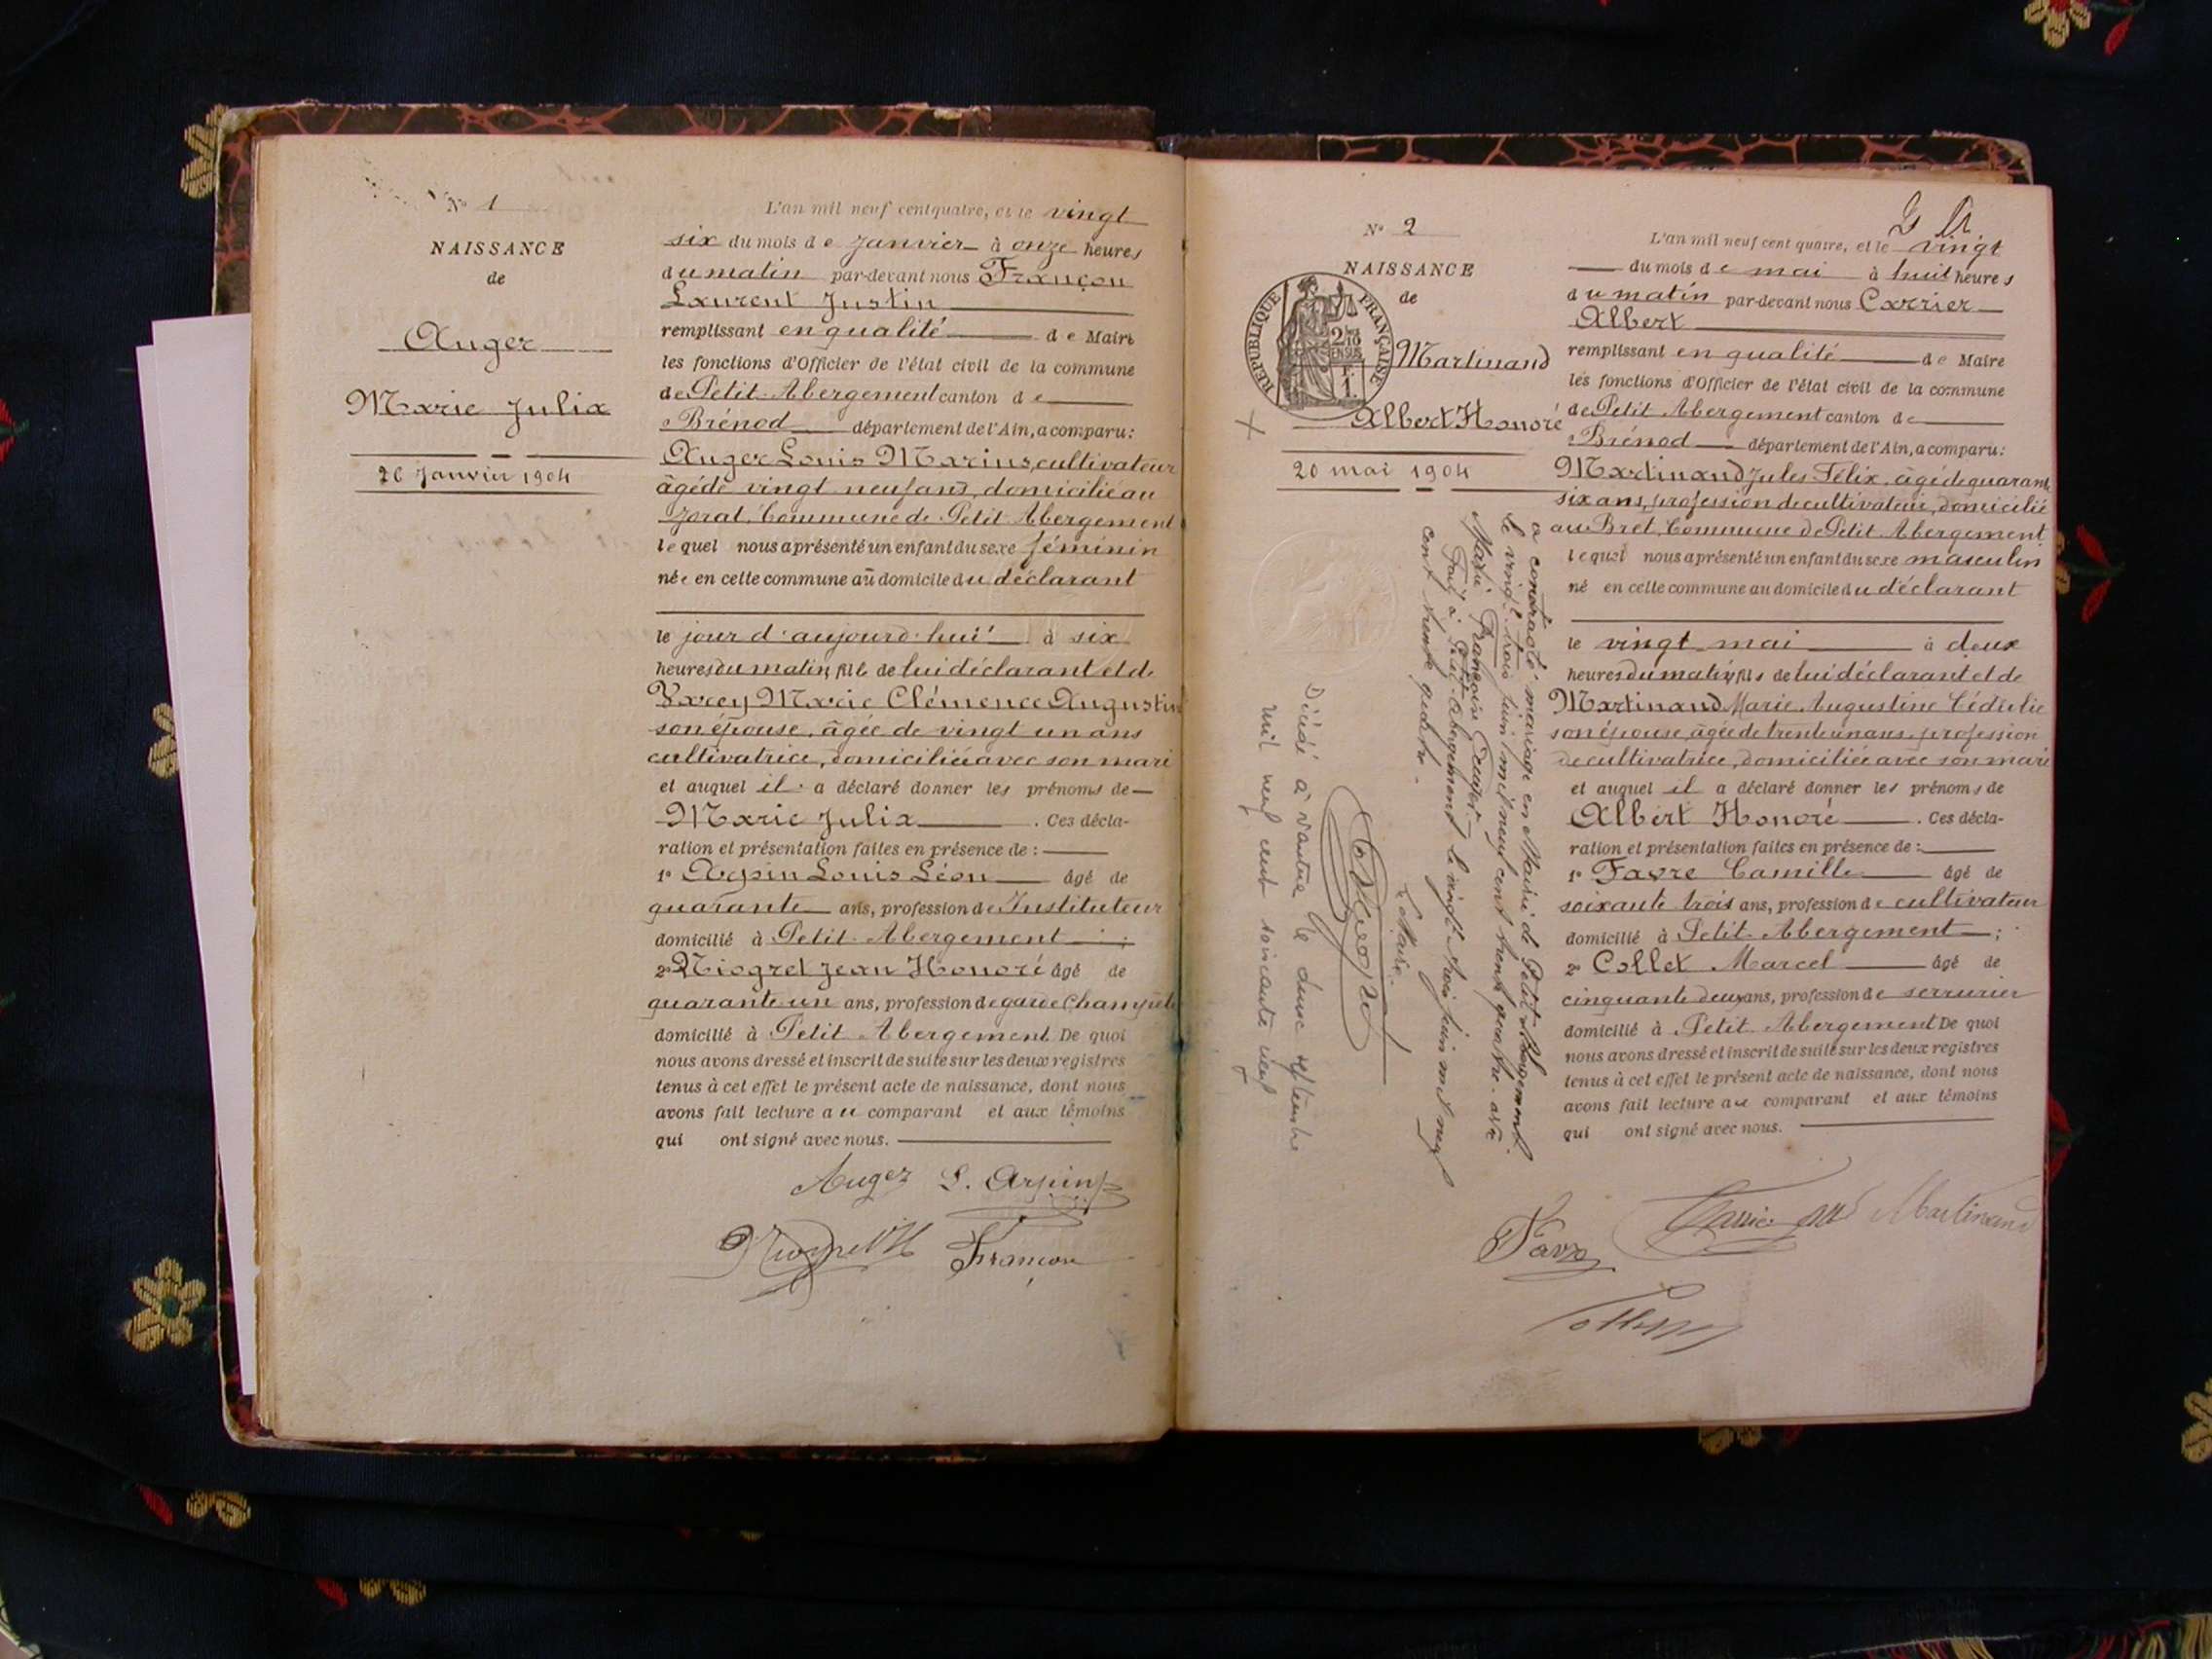 N° 1
NAISSANCE
de
Auger
Marie Julia
26 Janvier 1904
L'an mil neuf cent quatre, et le vingt
six du mois de Janvier à onze heures
du matin par-devant nous Françon
Laurent Justin
remplissant en qualité de Maire
les fonctions d'Officier de l'état civil de la commune
de Petit Abergement canton de
Brénod département de l'Ain, a comparu:
Auger Louis Marius, cultivateur
âgé de vingt neuf ans, domicilié au
Jorat, Commune de Petit Abergement
lequel nous a présenté un enfant du sexe féminin
née en cette commune au domicile du déclarant
le jour d'aujourd'hui à six
heures du matin, fille de lui déclarant et de
Varey Marie Clémence Augustine
son épouse, âgée de vingt un ans
cultivatrice, domiciliée avec son mari
et auquel il a déclaré donner les prénoms de
Marie Julia. Ces décla-
ration et présentation faites en présence de :
1° Arpin Louis Léon âgé de
quarante ans, profession de Instituteur
domicilié à Petit Abergement ;
2° Niogret Jean Honoré âgé de
quarante un ans, profession de garde Champêtre
domicilié à Petit Abergement De quoi
nous avons dressé et inscrit de suite sur les deux registres
tenus à cet effet le présent acte de naissance, dont nous
avons fait lecture au comparant et aux témoins
qui ont signé avec nous.
Auger L. Arpin
Niogret H Françon
N° 2
NAISSANCE
de
REPUBLIQUE FRANÇAISE
2/10 EN SUS
1 F.
Martinand
Albert Honoré
20 mai 1904
L'an mil neuf cent quatre, et le vingt
du mois de mai à huit heures
du matin par-devant nous Carrier
Albert
remplissant en qualité de Maire
les fonctions d'Officier de l'état civil de la commune
de Petit Abergement canton de
Brénod département de l'Ain, a comparu:
Martinand Jules Félix, âgé de quarante
six ans, profession de cultivateur, domicilié
au Bret, Commune de Petit Abergement
lequel nous a présenté un enfant du sexe masculin
né en cette commune au domicile du déclarant
le vingt mai à deux
heures du matin, fils de lui déclarant et de
Martinand Marie Augustine
son épouse, âgée de trente un ans, profession
de cultivatrice, domiciliée avec son mari
et auquel il a déclaré donner les prénoms de
Albert Honoré. Ces décla-
ration et présentation faites en présence de :
1° Favre Camille âgé de
soixante trois ans, profession de cultivateur
domicilié à Petit Abergement ;
2° Collet Marcel âgé de
cinquante deux ans, profession de serrurier
domicilié à Petit Abergement De quoi
nous avons dressé et inscrit de suite sur les deux registres
tenus à cet effet le présent acte de naissance, dont nous
avons fait lecture au comparant et aux témoins
qui ont signé avec nous.
a contracté mariage en Mairie de Petit Abergement
le vingt trois juin mil neuf cent trente quatre avec
Marie Françoise
Fait à Petit-Abergement le vingt trois juin mil neuf
cent trente quatre
Le Maire
Décédé à Nantua le douze septembre
mil neuf cent soixante neuf
Favre Carrier Martinand
Collet M